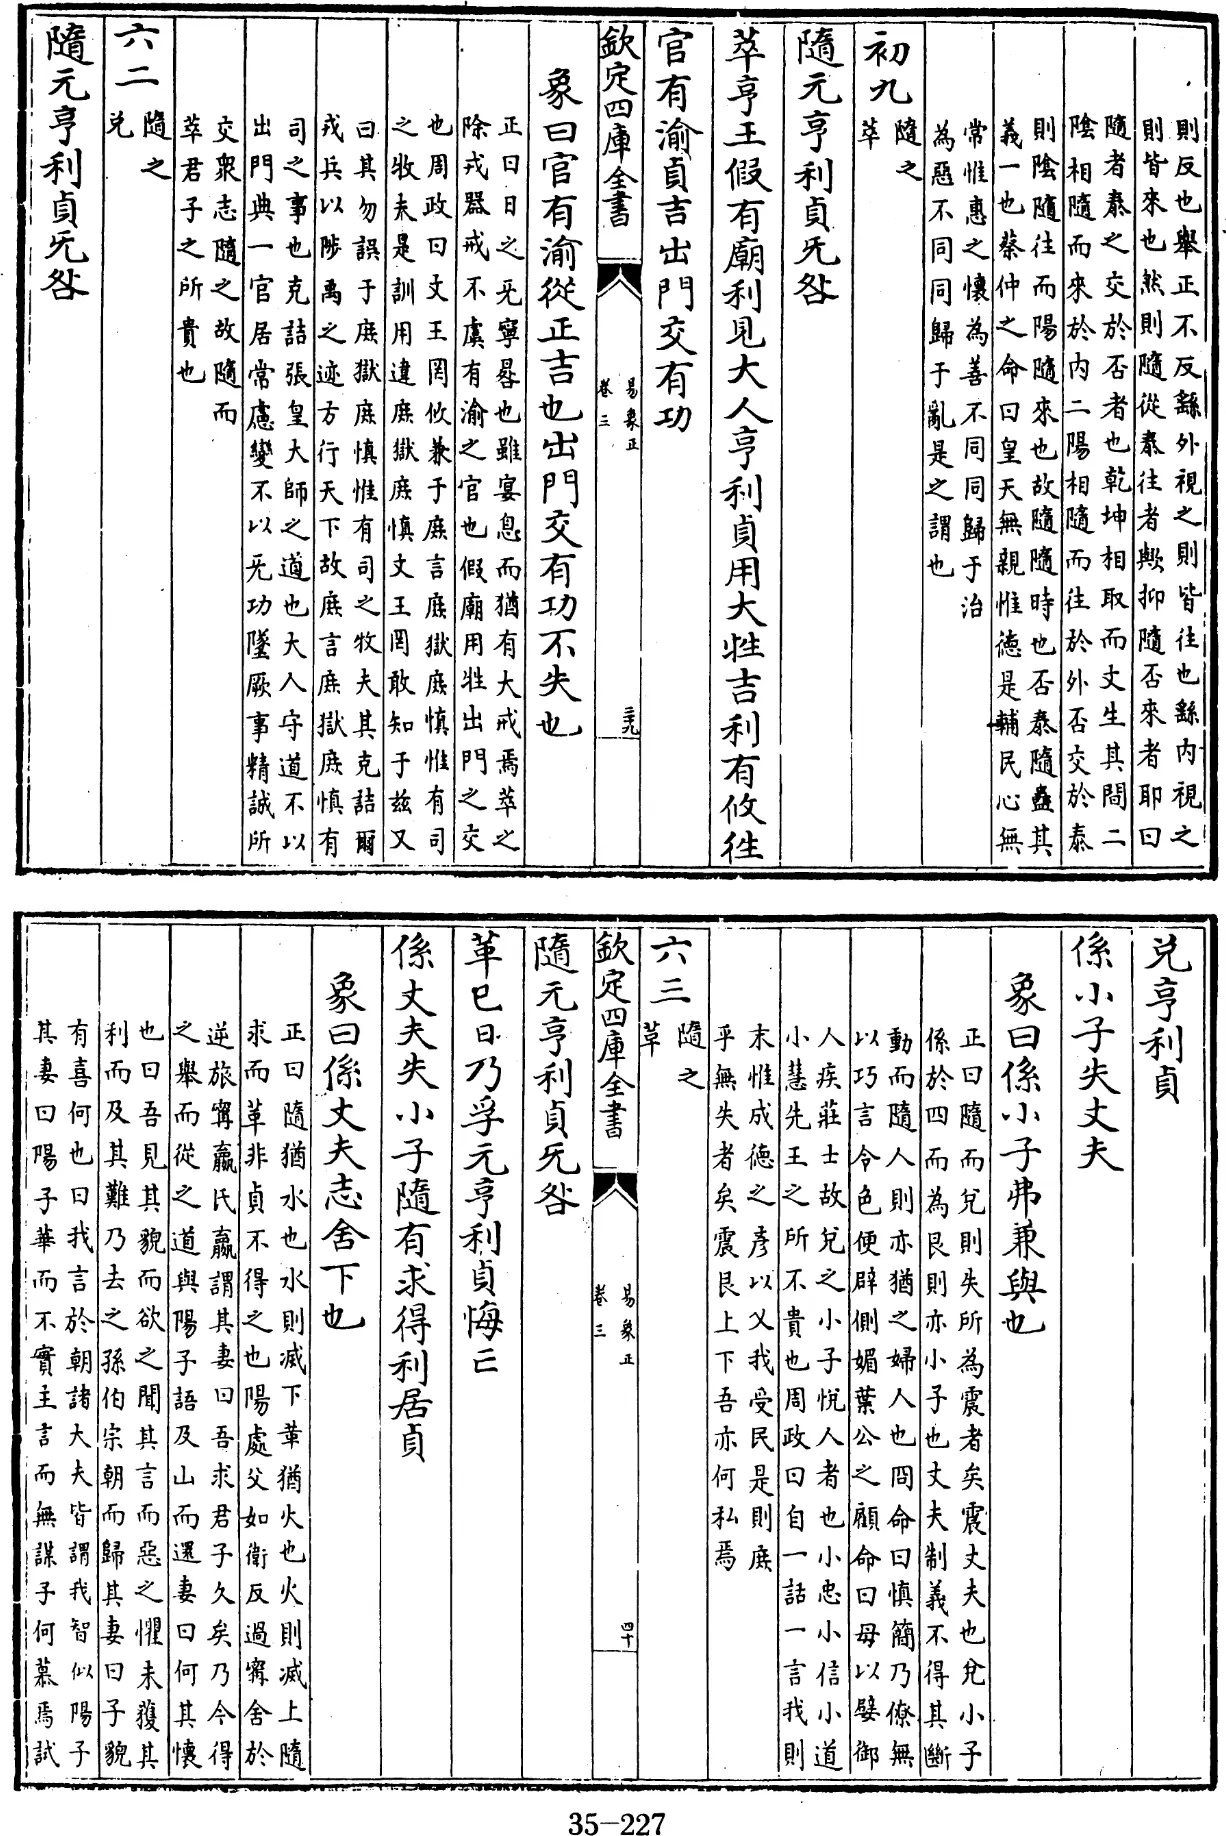 則反也舉正不反繇外視之則皆往也繇内視之
則皆來也然則隨從泰往者歟抑隨否來者耶曰
隨者泰之交於否者也乾坤相取而丈生其間二
陰相隨而來於内二陽相隨而往於外否交於泰
則陰隨往而陽隨來也故隨隨時也否泰隨蠱其
義一也蔡仲之命曰皇天無親惟德是輔民心無
常惟惠之懷為善不同同歸于治
為惡不同同歸于亂是之謂也
初九
隨之
萃
隨元亨利貞旡咎
萃亨王假有廟利見大人亨利貞用大牲吉利有攸往
官有渝貞吉出門交有功
欽定四庫全書
易象正
卷三
三九
象曰官有渝從正吉也出門交有功不失也
正曰日之旡寧晷也雖宴息而猶有大戒焉萃之
除戎器戒不虞有渝之官也假廟用牲出門之交
也周政曰文王罔攸兼于庶言庶獄庶慎惟有司
之牧夫是訓用違庶獄庶慎文王罔敢知于兹又
曰其勿誤于庶獄庶慎惟有司之牧夫其克詰爾
戎兵以陟禹之迹方行天下故庶言庶獄庶慎有
司之事也克詰張皇大師之道也大人守道不以
出門典一官居常慮變不以旡功墜厥事精誠所
交衆志隨之故隨而
萃君子之所貴也
六二
隨之
兌
隨元亨利貞旡咎
兌亨利貞
係小子失丈夫
象曰係小子弗兼與也
正曰隨而兌則失所為震者矣震丈夫也兌小子
係於四而為艮則亦小子也丈夫制義不得其斷
動而隨人則亦猶之婦人也冏命曰慎簡乃僚無
以巧言令色便辟側媚葉公之顧命曰毋以嬖御
人疾莊士故兌之小子悅人者也小忠小信小道
小慧先王之所不貴也周政曰自一話一言我則
末惟成德之彥以乂我受民是則庶
乎無失者矣震艮上下吾亦何私焉
六三
隨之
革
隨元亨利貞旡咎
欽定四庫全書
易象正
卷三
四十
革已日乃孚元亨利貞悔亡
係丈夫失小子隨有求得利居貞
象曰係丈夫志舍下也
正曰隨猶水也水則滅下革猶火也火則滅上隨
求而革非貞不得之也陽處父如衛反過寗舍於
逆旅寗嬴氏嬴謂其妻曰吾求君子久矣乃今得
之舉而從之道與陽子語及山而還妻曰何其懷
也曰吾見其貌而欲之聞其言而惡之懼未獲其
利而及其難乃去之孫伯宗朝而歸其妻曰子貌
有喜何也曰我言於朝諸大夫皆謂我智似陽子
其妻曰陽子華而不實主言而無謀子何慕焉試
35-227